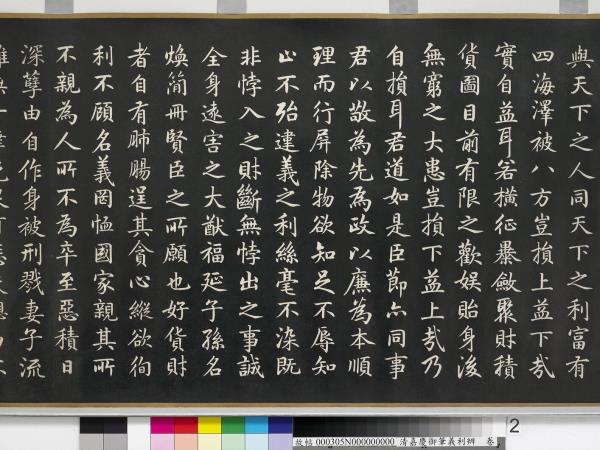 與天下之人同天下之利富有
四海澤被八方豈損上益下哉
實自益耳若橫征暴斂聚財積
貨圖目前有限之歡娛貽身後
無窮之大患豈損下益上哉乃
自損耳君道如是臣節亦同事
君以敬為先為政以廉為本順
理而行屏除物欲知足不辱知
止不殆建義之利絲毫不染既
非悖入之財斷無悖出之事誠
全身遠害之大猷福延子孫名
煥簡冊賢臣之所願也好貨財
者自有肺腸逞其貪心縱欲徇
利不顧名義罔恤國家親其所
不親為人所不為卒至惡積日
深孽由自作身被刑戮妻子流
2
故帖 000305N000000000 清嘉慶御筆義利辨 卷